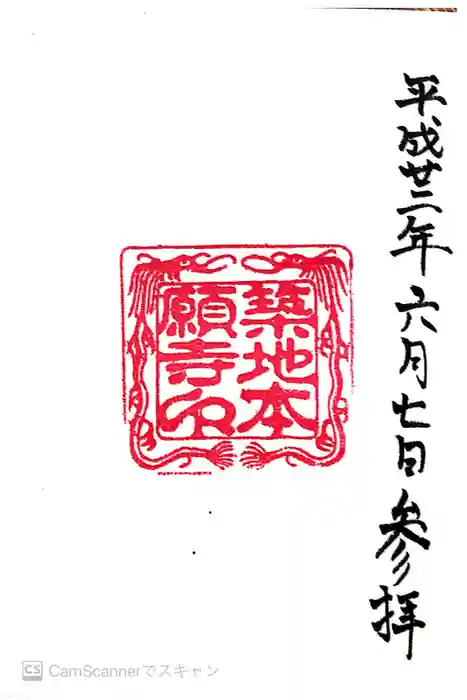 平成廿二年六月七日参拝
築地本
願寺印
CamScannerでスキャン